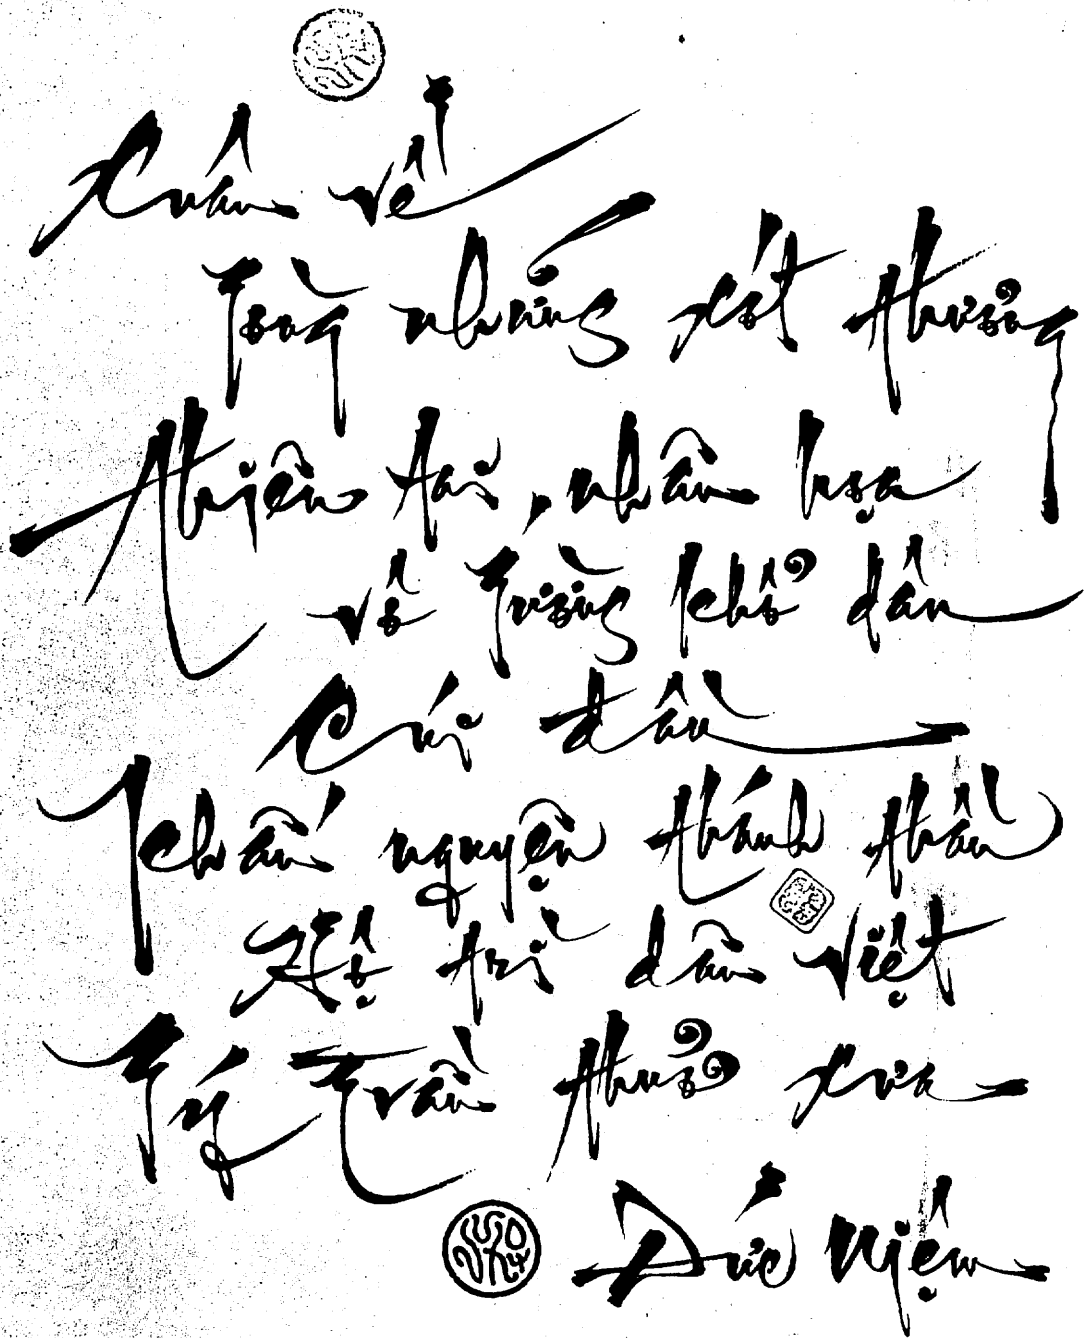 Xuân về
Lòng những xót thương
Thiên tai, nhân họa
vô lường khổ dân
Cúi đầu
Khấn nguyện thánh thần
Hộ trì dân Việt
Lý Trần thuở xưa
Đức Niệm